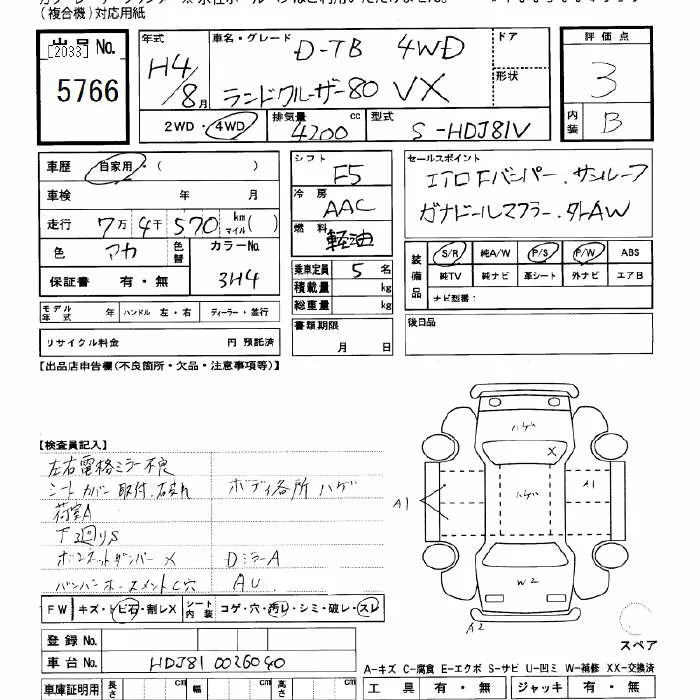 (複合機)対応用紙
出品 No.
[2033]
5766
年式
H4/8月
車名・グレード
D-TB 4WD
ランドクルーザー80 VX
ドア
形状
2WD・4WD
排気量
4200 cc
型式
S-HDJ81V
評価点
3
内装
B
車歴 自家用・( )
車検 年 月
走行 7万 4千 570 km マイル( )
色 アカ
色替
カラーNo.
3H4
保証書 有・無
シフト
F5
冷房
AAC
燃料
軽油
乗車定員 5 名
積載量 kg
総重量 kg
書類期限
月 日
セールスポイント
エアロFバンパー.サンルーフ
ガナドールマフラー.タトAW
装備品
S/R 純A/W P/S P/W ABS
純TV 純ナビ 革シート 外ナビ エアB
ナビ型番:
後日品
モデル年式 年 ハンドル 左・右 ディーラー・並行
リサイクル料金 円 預託済
【出品店申告欄(不良箇所・欠品・注意事項等)】
【検査員記入】
左右電格ミラー不良
シートカバー取付.破れ ボディ各所ハゲ
荷室A
下回りS
ボンネットダンパーX DミラーA
AU
FW キズ・トビ石・割レX シート内装 コゲ・穴・汚レ・シミ・破レ・スレ
登録 No.
車台 No. HDJ81 0026040
車庫証明用 長さ cm 幅 cm 高さ cm
ハゲ
X
ハゲ
A1
A1
W2
A2
スペア
A-キズ C-腐食 E-エクボ S-サビ U-凹ミ W-補修 XX-交換済
工具 有・無 ジャッキ 有・無